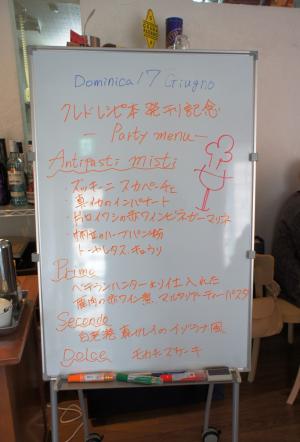 Dominica 17 Giugno
クレドレシピ本 発刊記念
— Party menu —
Antipasti misti
・ズッキーニ スカペーチェ
・真イカのインパナート
・片口イワシの赤ワインビネガーマリネ
のハーブパン粉
トーレタス、キュウリ
Primo
ベテランハンターより仕入れた
鹿肉の赤ワイン煮、マルタリアーティーパスタ
Secondo
真ガレイのイソラナ風
Dolce